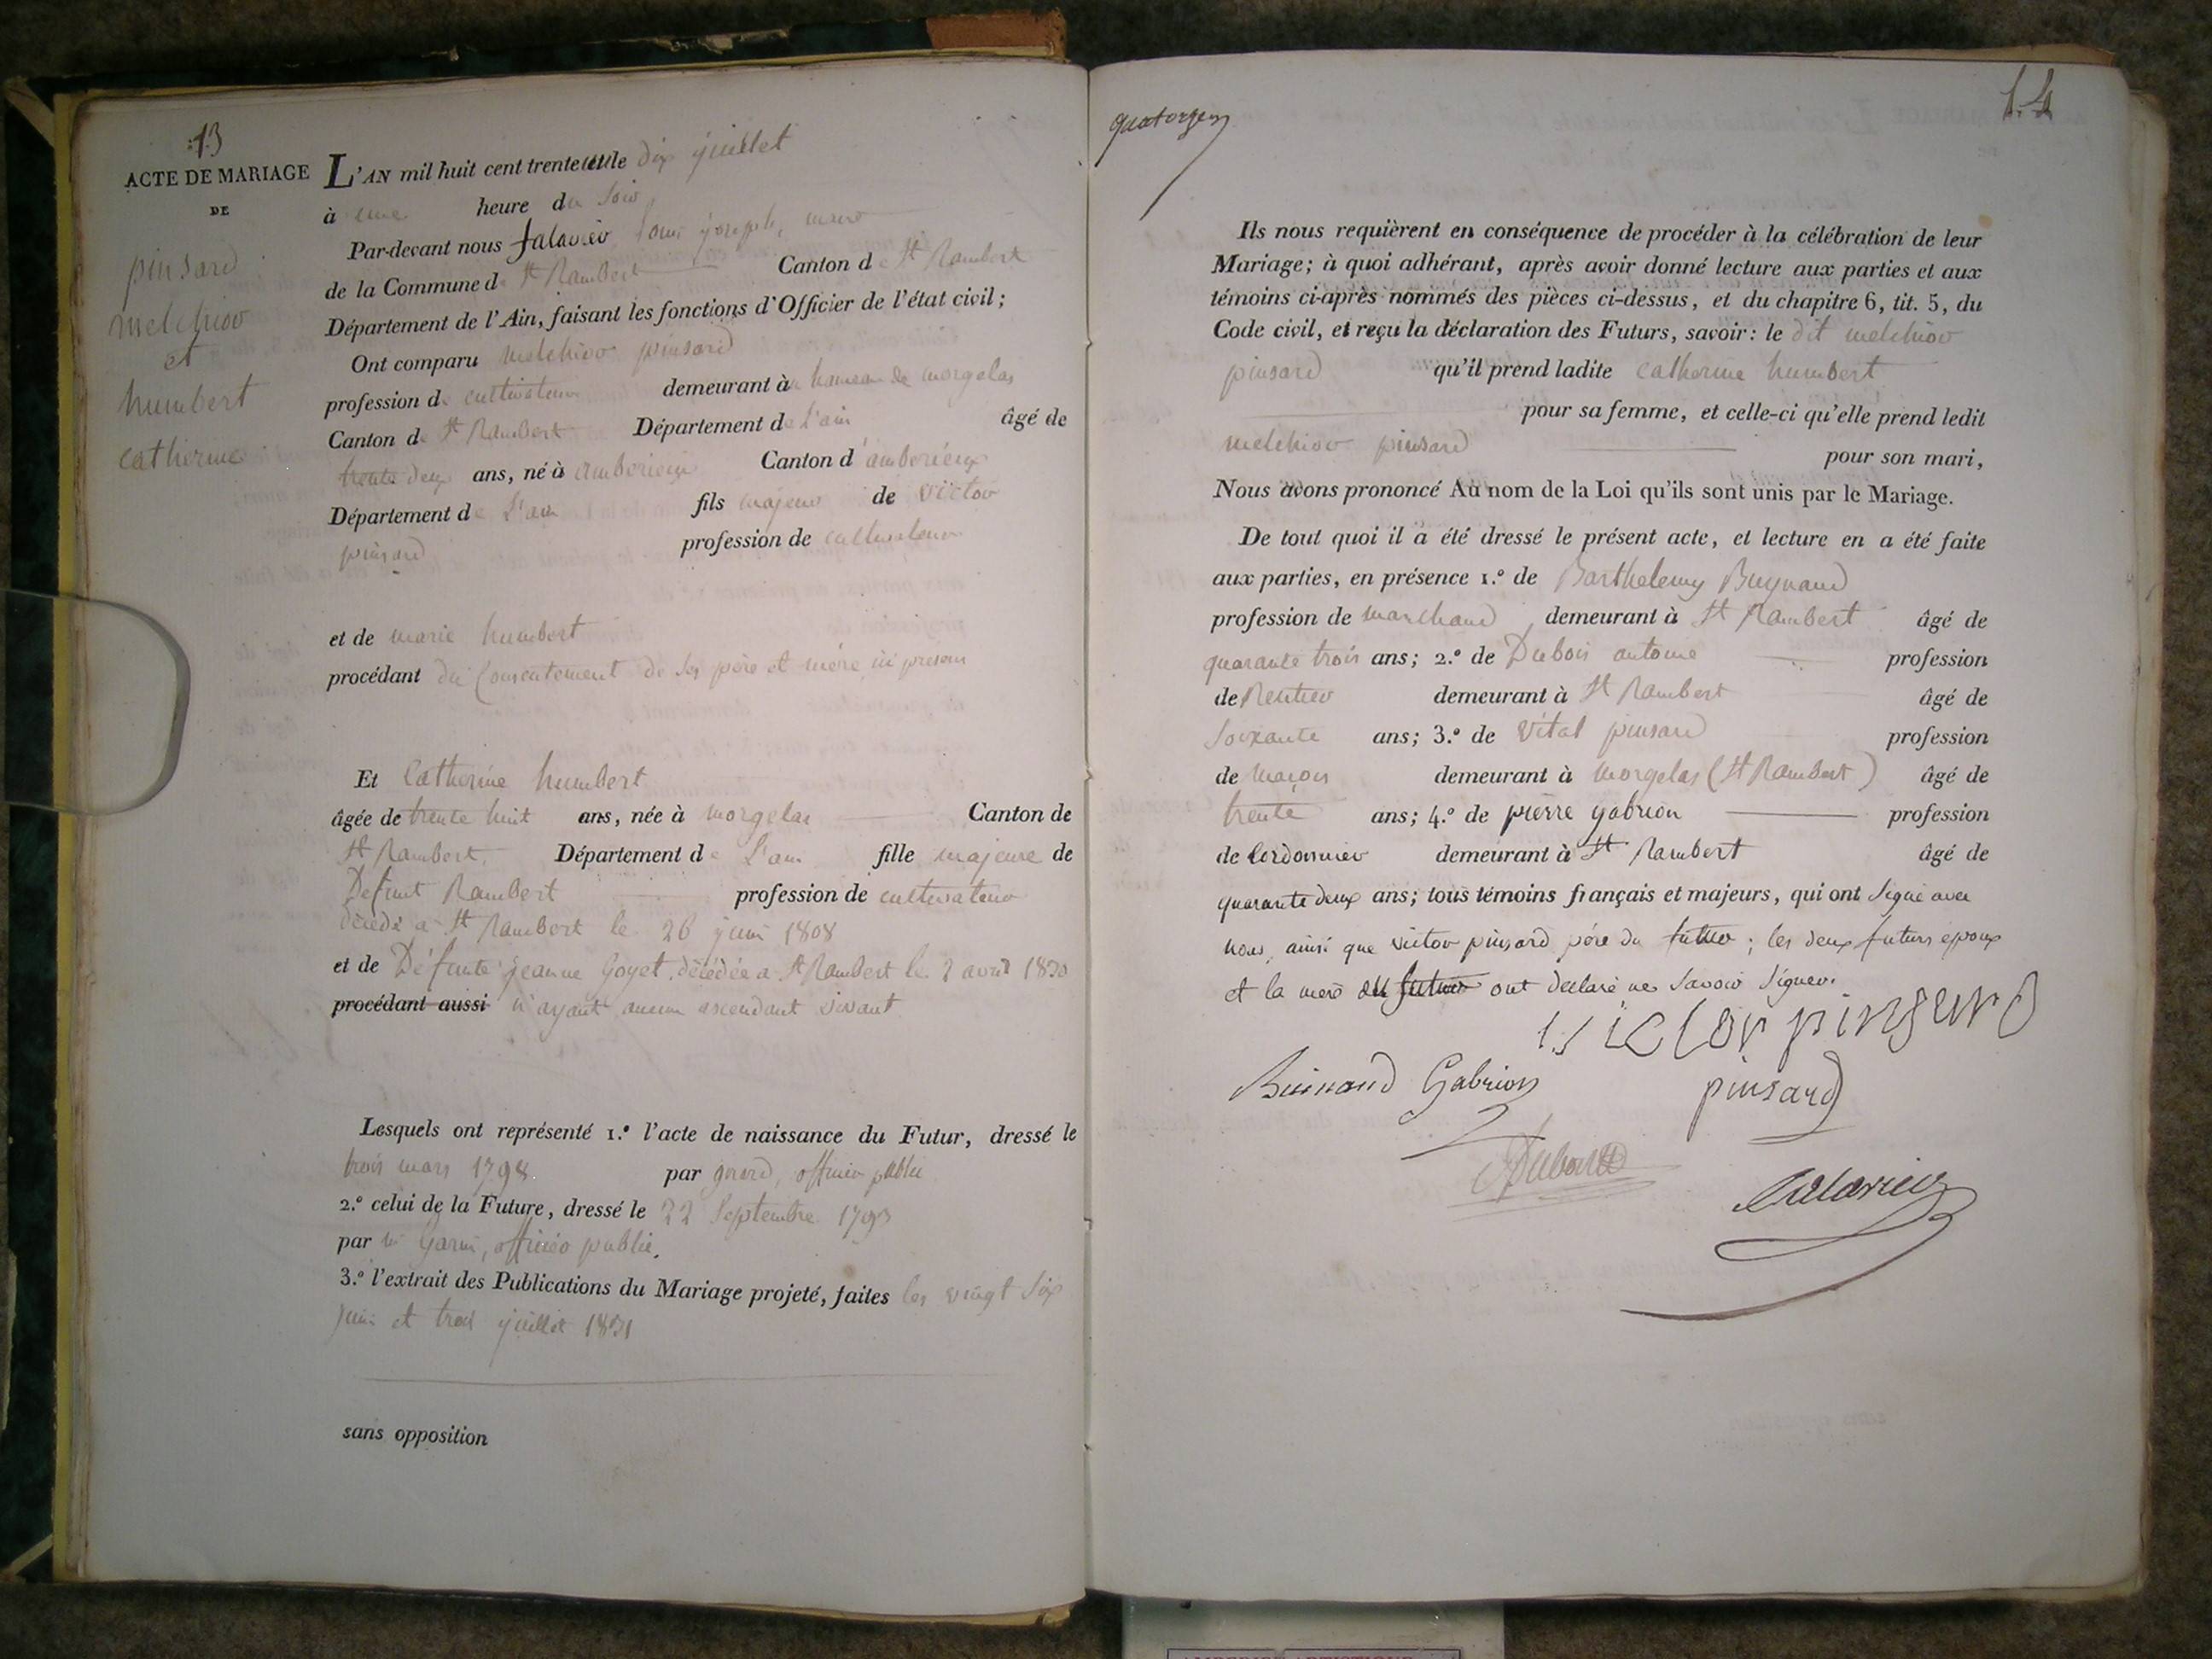 13
ACTE DE MARIAGE
DE
pinsard
melchior
et
humbert
catherine
L'AN mil huit cent trente et un le dix juillet
à une heure du Soir
Par-devant nous falavier louis joseph, maire
de la Commune de St Rambert Canton de St Rambert
Département de l'Ain, faisant les fonctions d'Officier de l'état civil;
Ont comparu melchior pinsard
profession de cultivateur demeurant à hameau de morgelas
Canton de St Rambert Département de L'ain âgé de
trente deux ans, né à amberieux Canton d'amberieux
Département de L'ain fils majeur de victor
pinsard profession de cultivateur
et de marie humbert
procédant du Consentement de ses père et mère ici présens
Et Catherine humbert
âgée de trente huit ans, née à morgelas Canton de
St Rambert Département de L'ain fille majeure de
Defunt Rambert profession de cultivateur
décédé a St Rambert le 26 juin 1808
et de Défunte jeanne Goyet décédée a St Rambert le 2 avril 1830
procédant aussi n'ayant aucun ascendant vivant
Lesquels ont représenté 1.º l'acte de naissance du Futur, dressé le
trois mars 1798 par officier public
2.º celui de la Future, dressé le 22 Septembre 1793
par officier public.
3.º l'extrait des Publications du Mariage projeté, faites les vingt six
juin et trois juillet 1831
sans opposition
quatorze
14
Ils nous requièrent en conséquence de procéder à la célébration de leur
Mariage; à quoi adhérant, après avoir donné lecture aux parties et aux
témoins ci-après nommés des pièces ci-dessus, et du chapitre 6, tit. 5, du
Code civil, et reçu la déclaration des Futurs, savoir: le dit melchior
pinsard qu'il prend ladite catherine humbert
pour sa femme, et celle-ci qu'elle prend ledit
melchior pinsard pour son mari,
Nous avons prononcé Au nom de la Loi qu'ils sont unis par le Mariage.
De tout quoi il a été dressé le présent acte, et lecture en a été faite
aux parties, en présence 1.º de Barthelemy Buynand
profession de marchand demeurant à St Rambert âgé de
quarante trois ans; 2.º de Dubois antoine profession
de Rentier demeurant à St Rambert âgé de
soixante ans; 3.º de Vital pinsard profession
de maçon demeurant à morgelas (St Rambert) âgé de
trente ans; 4.º de pierre gabrion profession
de Cordonnier demeurant à St Rambert âgé de
quarante deux ans; tous témoins français et majeurs, qui ont Signé avec
nous, ainsi que victor pinsard père du futur; les deux futurs epoux
et la mère du futur ont declaré ne Savoir Signer.
victor pinsard
Buinand Gabrion pinsard
ADubois
falavier